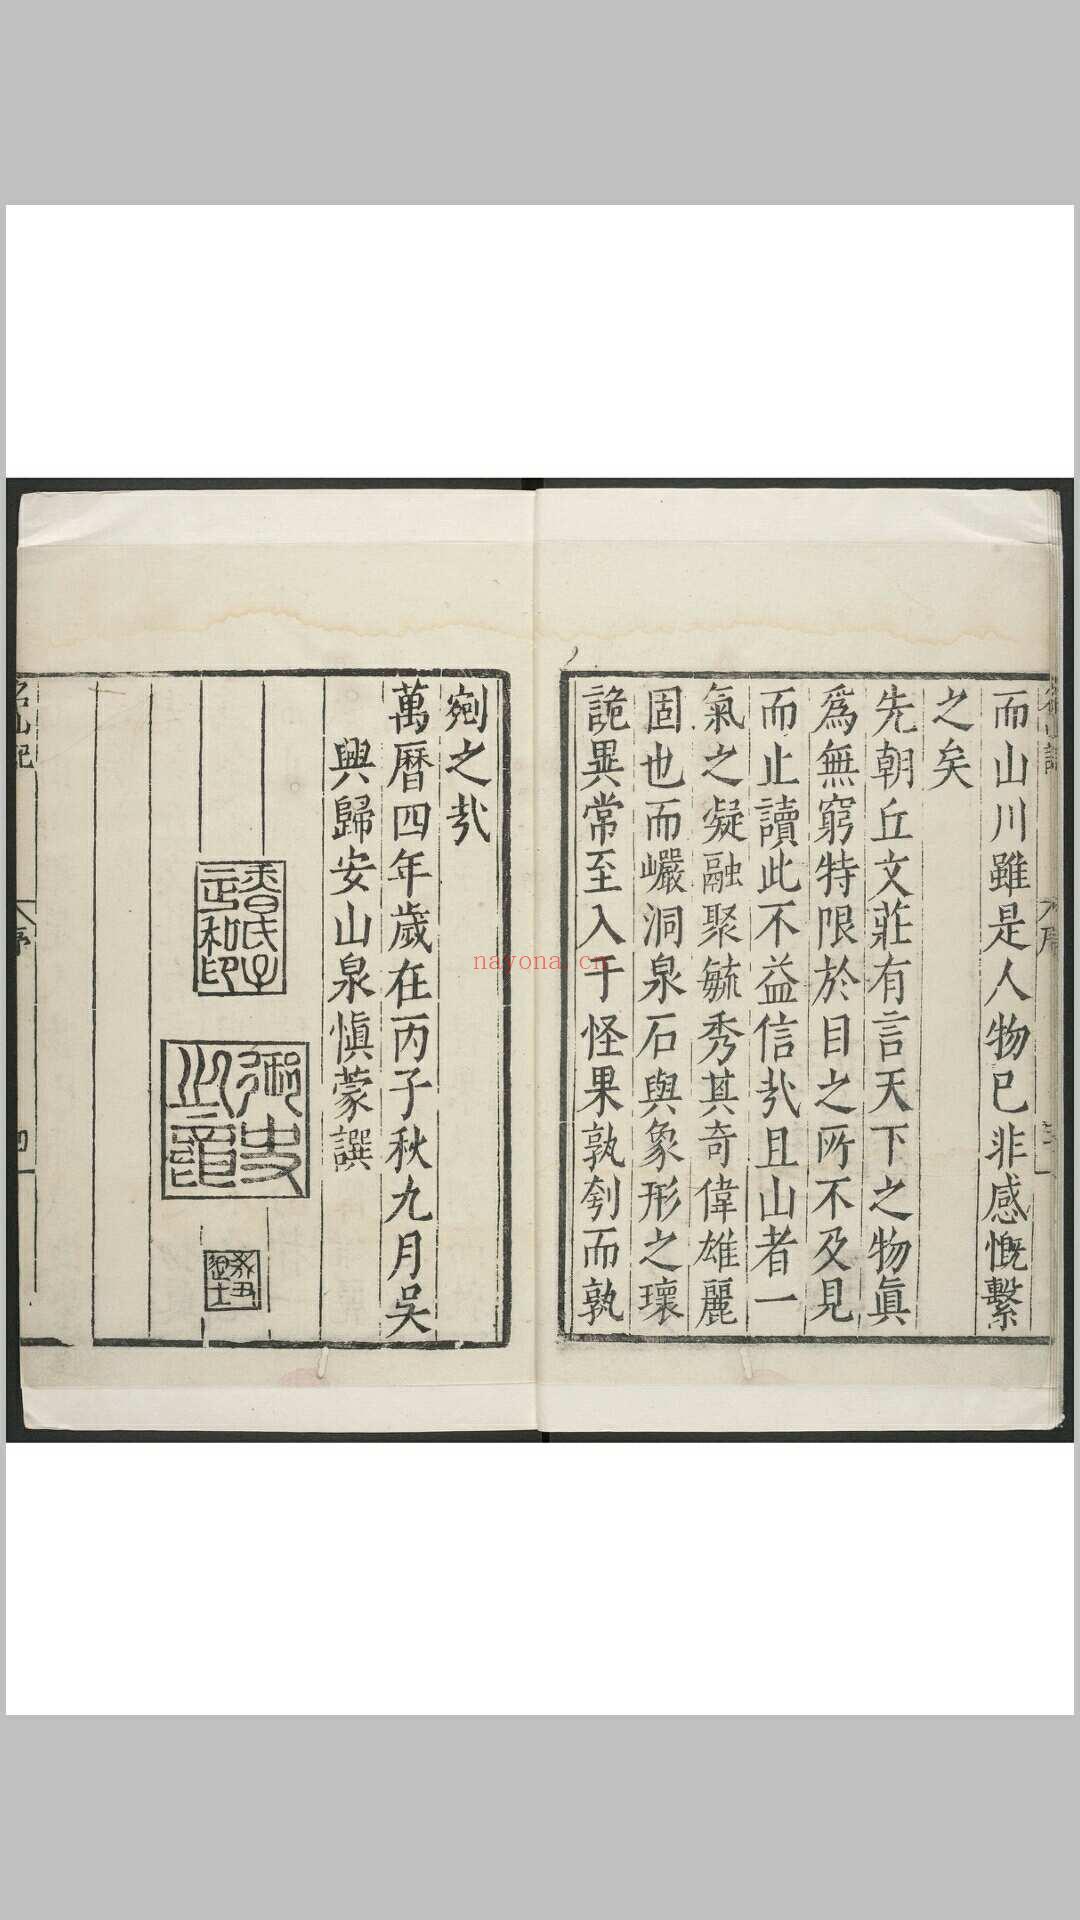 而山川雖是人物已非感慨繫
之矣
先朝丘文莊有言天下之物眞
爲無窮特限於目之所不及見
而止讀此不益信㢤且山者一
氣之凝融聚毓秀其奇偉雄麗
固也而巗洞泉石與象形之瓌
詭異常至入于怪果孰刳而孰
剜之㢤
萬曆四年歲在丙子秋九月吳
興歸安山泉愼蒙譔
御史之章
名山記
序
四
nayona.cn